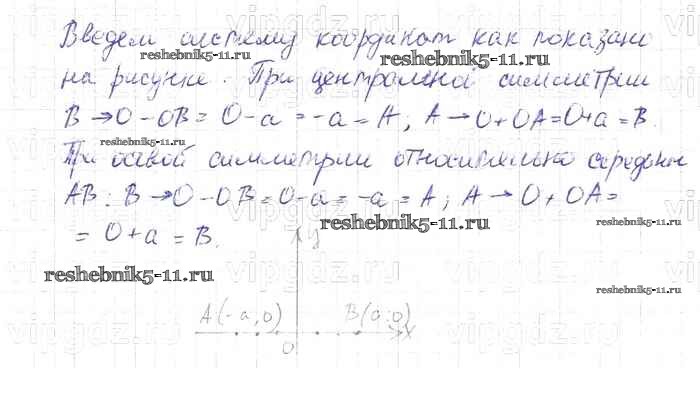 Введем систему координат как показано
на рисунке. При центральной симметрии
B → O - OB = O - a = -a = A; A → O + OA = O + a = B.
При осевой симметрии относительно середины
AB: B → O - OB = O - a = -a = A; A → O + OA =
= O + a = B.
y
A(-a,0) B(a;0)
x
O
reshebnik5-11.ru
reshebnik5-11.ru
reshebnik5-11.ru
reshebnik5-11.ru
reshebnik5-11.ru
reshebnik5-11.ru